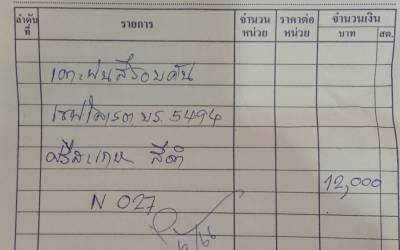 ลำดับที่ รายการ จำนวนหน่วย ราคาต่อหน่วย จำนวนเงิน บาท สต.
เคาะพ่นสีรอบคัน
เชฟโรเลต บร. 5494
ศรีสะเกษ สีดำ
12,000
N 027